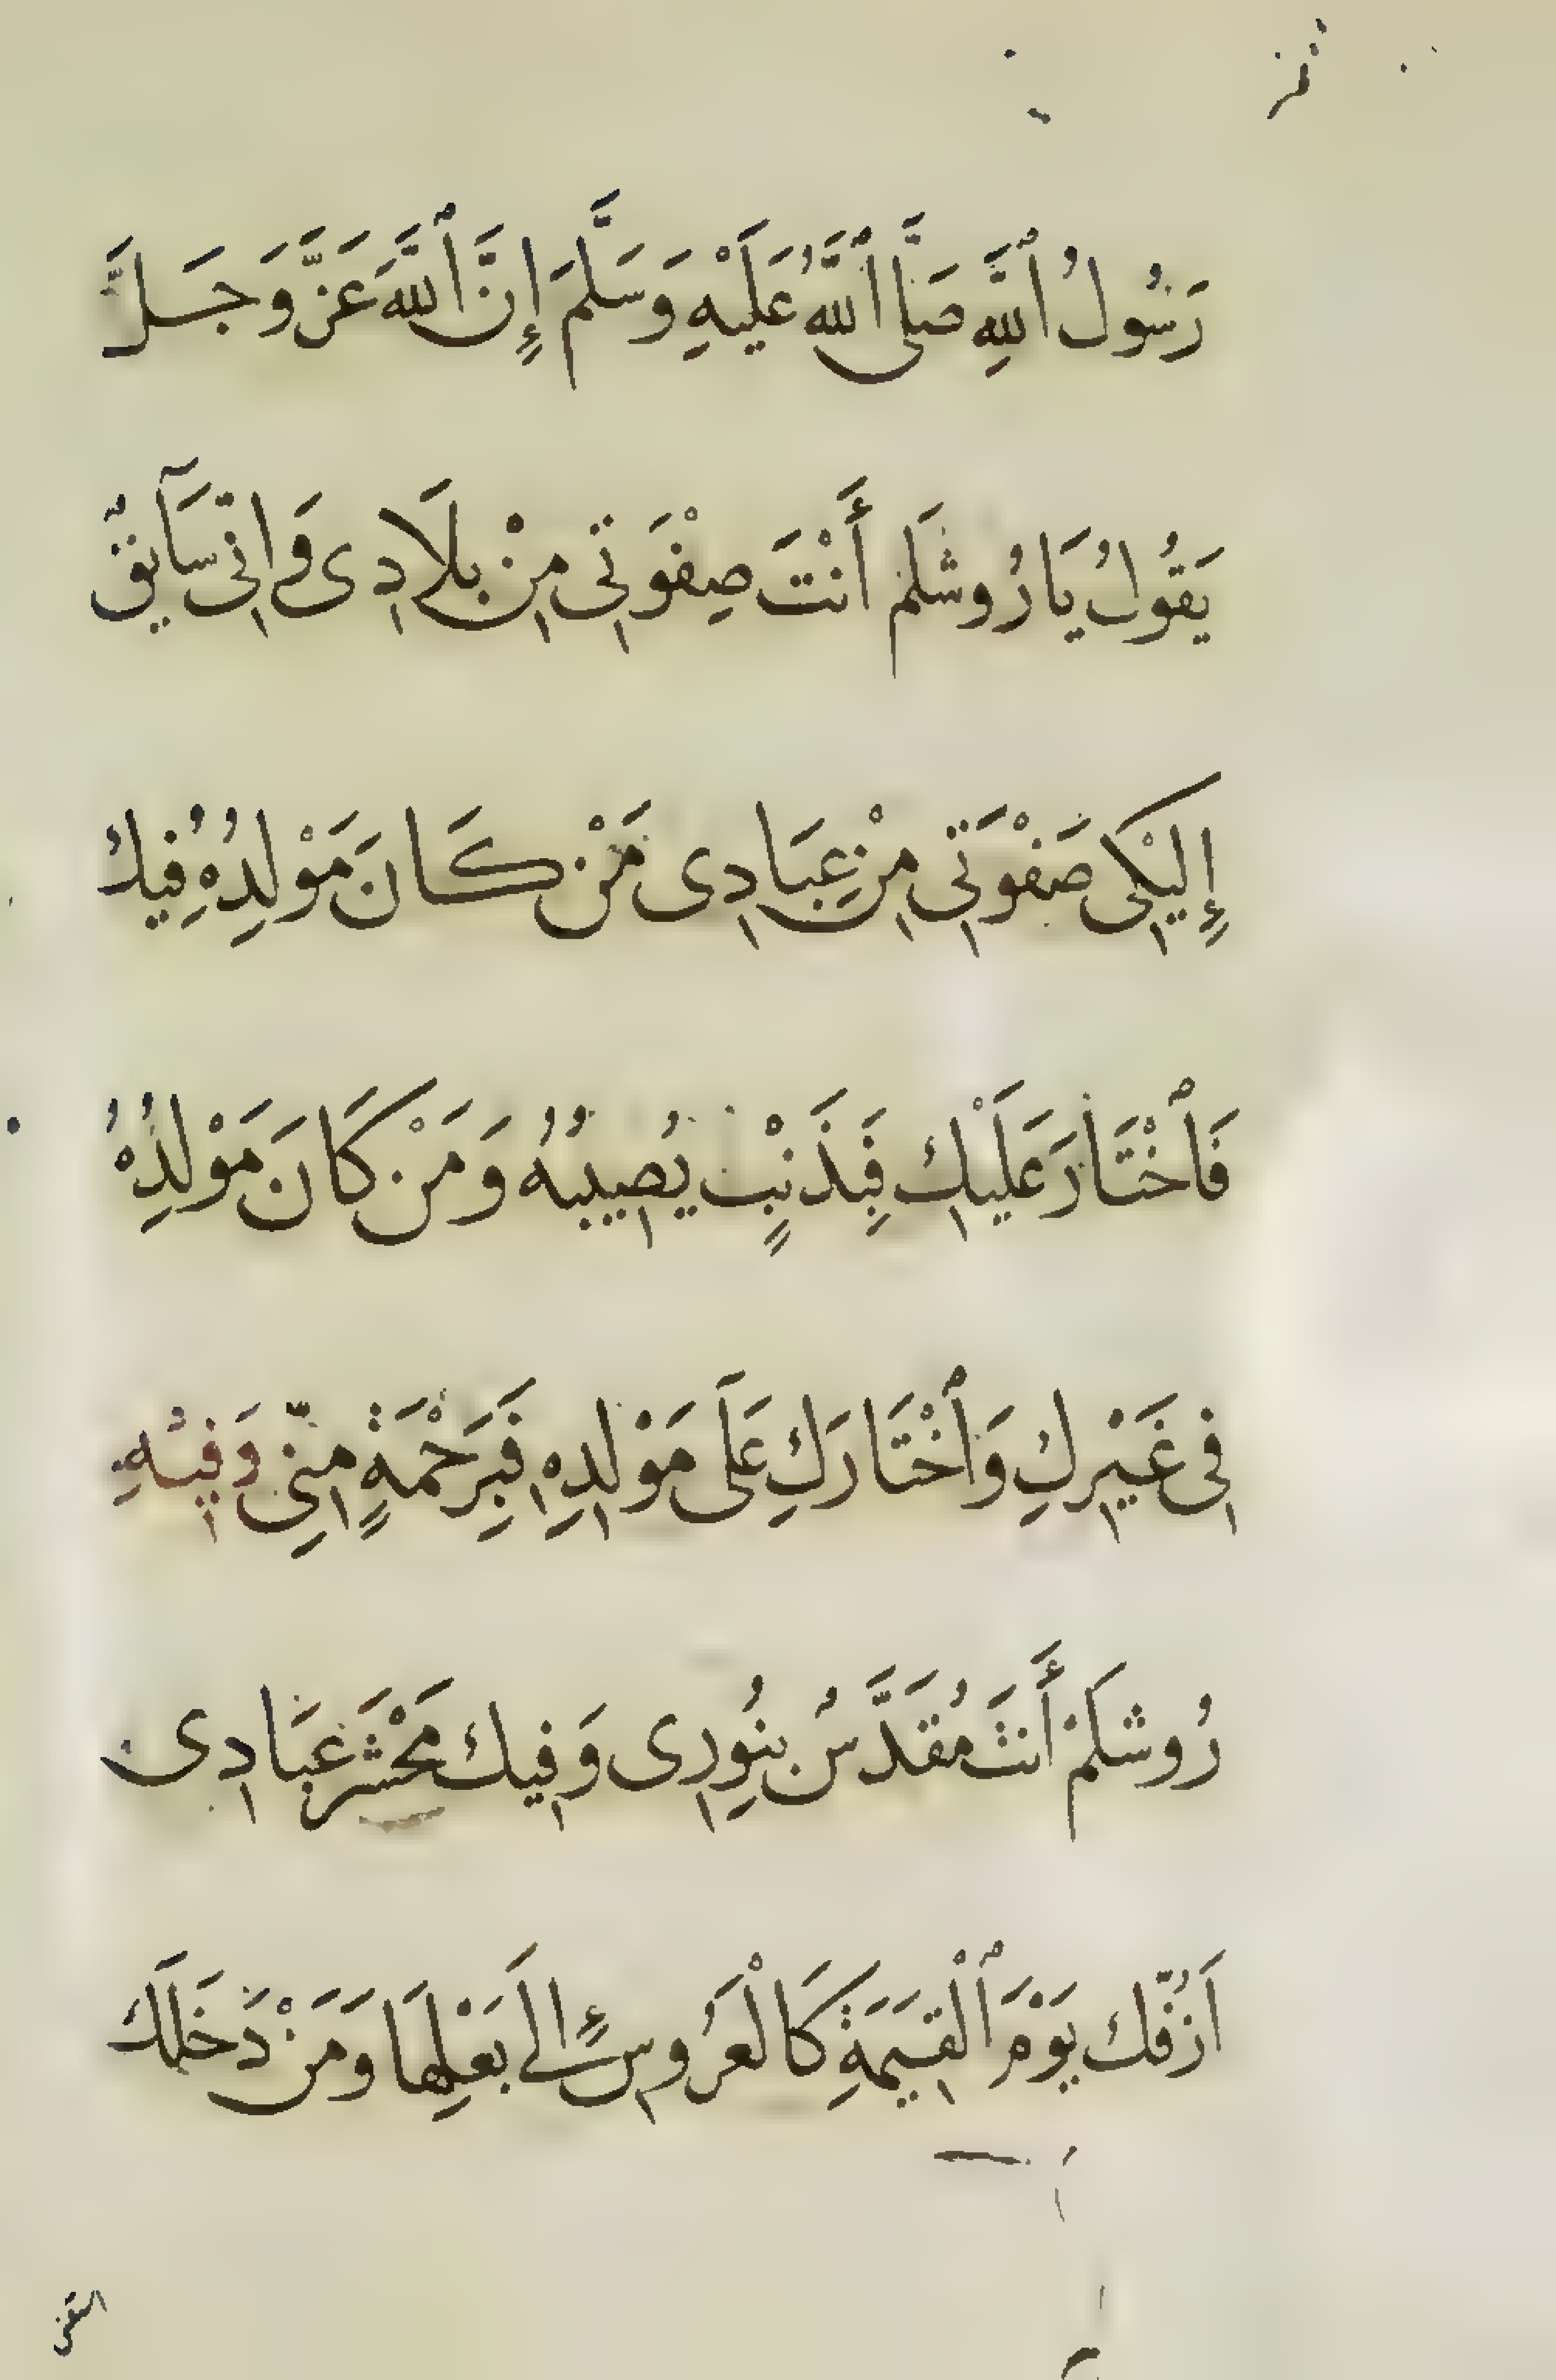 رَسُولُ ٱللَّهِ صَلَّى ٱللَّهُ عَلَيْهِ وَسَلَّمَ إِنَّ ٱللَّهَ عَزَّ وَجَلَّ
يَقُولُ يَارُوشَلَم أَنْتَ صِفْوَتِى مِنْ بِلَادِى وَانِّى سَآئِقٌ
إِلَيْكِى صَفْوَتِى مِنْ عِبَادِى مَنْ كَانَ مَوْلِدُهُ فِيكَ
فَٱخْتَارَ عَلَيْكِ فَبِذَنْبٍ يُصِيبُهُ وَمَنْ كَانَ مَوْلِدُهُ
فِى غَيْرِكِ وَٱخْتَارَكِ عَلَى مَوْلِدِهِ فَبِرَحْمَةٍ مِنِّى وَفِيْهِ
رُوشَلَمْ أَنتَ مُقَدَّسُ بِنُورِى وَفِيكِ مَحْشَرُ عِبَادِى
اَزُفُّكِ يَوْمَ ٱلْقِيَمَةِ كَالْعَرُوسِ إِلَى بَعْلِهَا وَمَنْ دَخَلَكَ